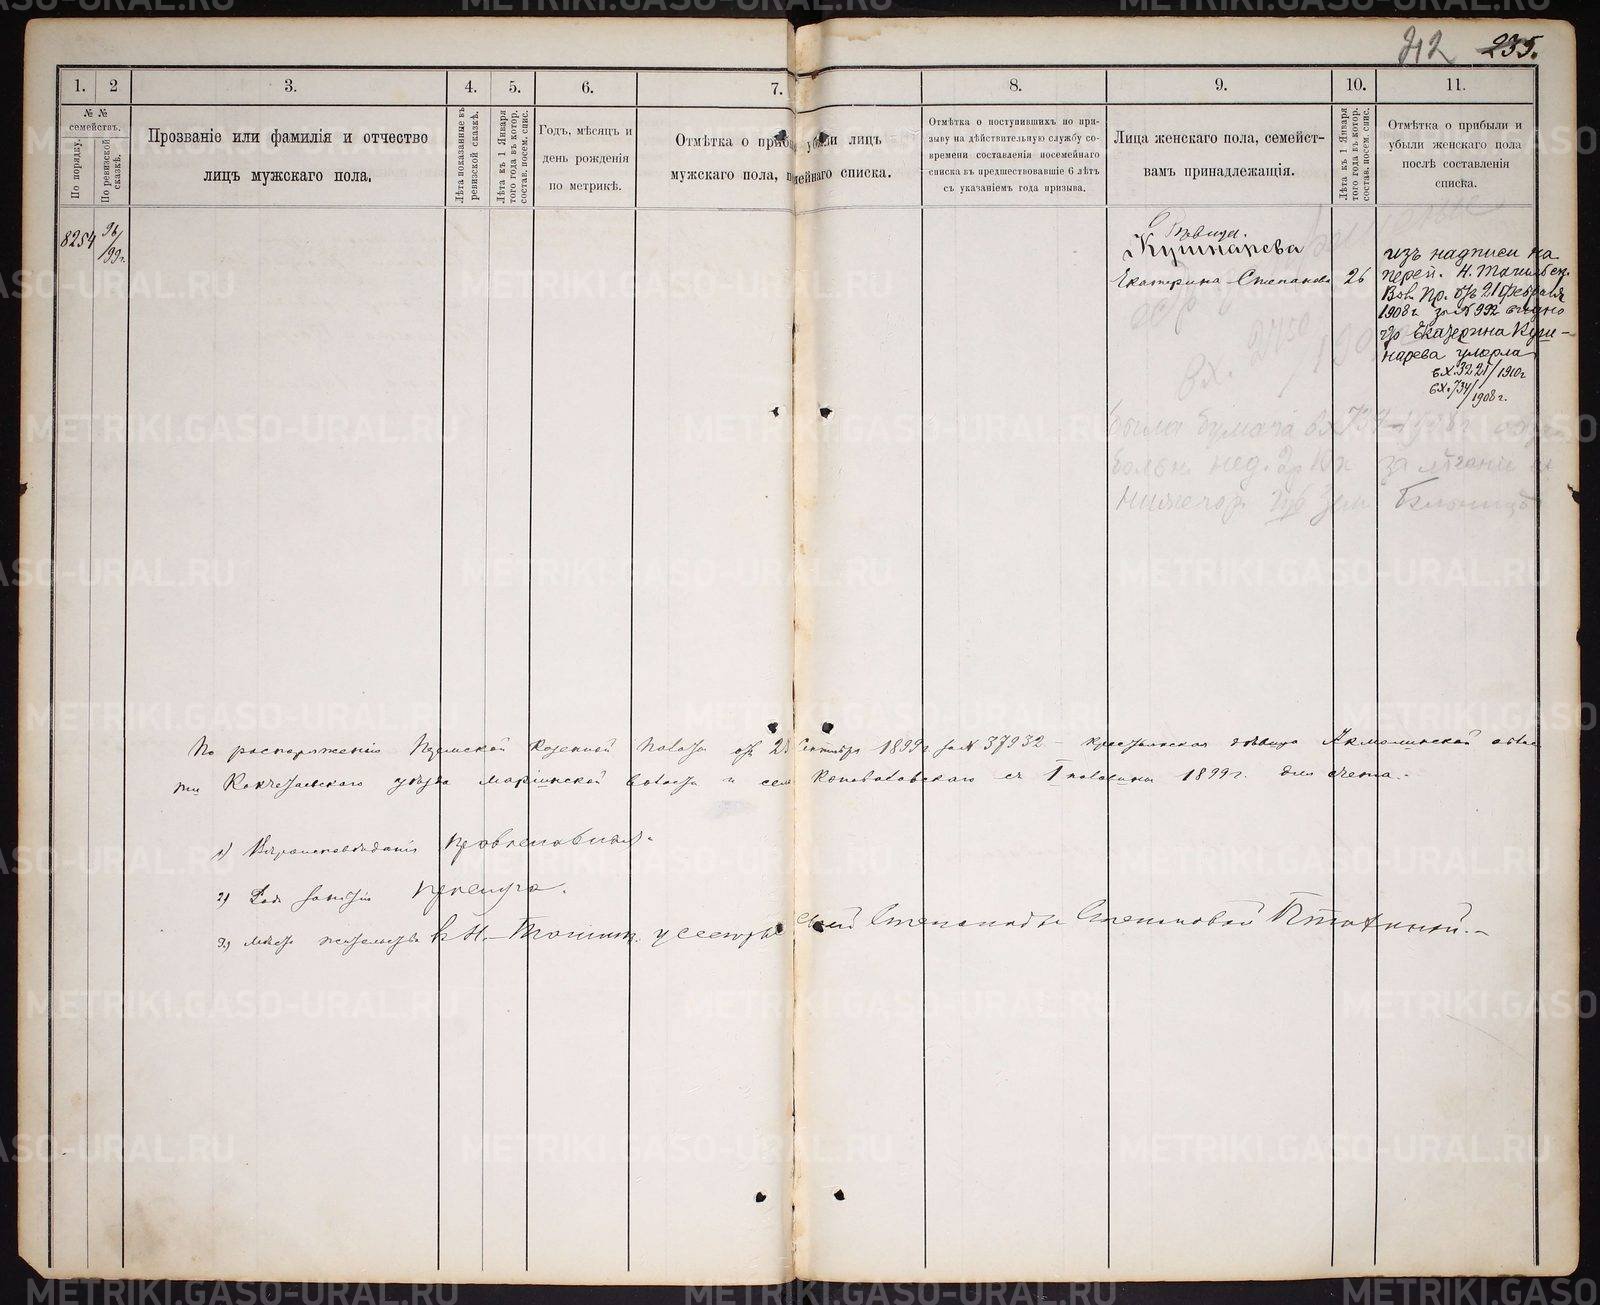 212 235.
1. 2 3. 4. 5. 6. 7. 8. 9. 10. 11.
№ № семействъ.
По порядку.
По ревизской сказкѣ.
Прозваніе или фамилія и отчество
лицъ мужскаго пола.
Лѣта показанные въ ревизской сказкѣ.
Лѣта къ 1 Января того года въ котор. состав. посем. спис.
Годъ, мѣсяцъ и
день рожденія
по метрикѣ.
Отмѣтка о приб убыли лицъ
мужскаго пола, п мейнаго списка.
Отмѣтка о поступившихъ по при-
зыву на дѣйствительную службу со-
времени составленія посемейнаго
списка въ предшествовавшіе 6 лѣтъ
съ указаніемъ года призыва.
Лица женскаго пола, семейст-
вамъ принадлежащія.
Лѣта къ 1 Января того года въ котор. состав. посем. спис.
Отмѣтка о прибыли и
убыли женскаго пола
послѣ составленія
списка.
8254 96/99г.
Дѣвица.
Кушнарева
Екатерина Степанова 26
изъ надписи на
переп. Н. Тагильск.
Вол. Пр. отъ 21 февраля
1908 г за № 992 видно
что Екатерина Куш-
нарева умерла
вх. 3221/1910г
вх. 734/1908 г.
вх. 2450
была бумага вх 734-1908г
больн. за лѣченіе въ
Нижегор. губ Зем больницѣ
По распоряженію Пермской Казенной Палаты отъ 28 Сентября 1899 г за № 37932 – крестьянская дѣвица Акмолинской облас
ти Кокчетавскаго уѣзда Маріинской волости и сел. Коноваловскаго съ I половины 1899 г. для счета.-
1) Вѣроисповѣданія православнаго.
2) Родъ занятія прислуга.
3) мѣсто жительства въ Н.-Тагилѣ. у сестры своей Степаниды Степановой
METRIKI.GASO-URAL.RU